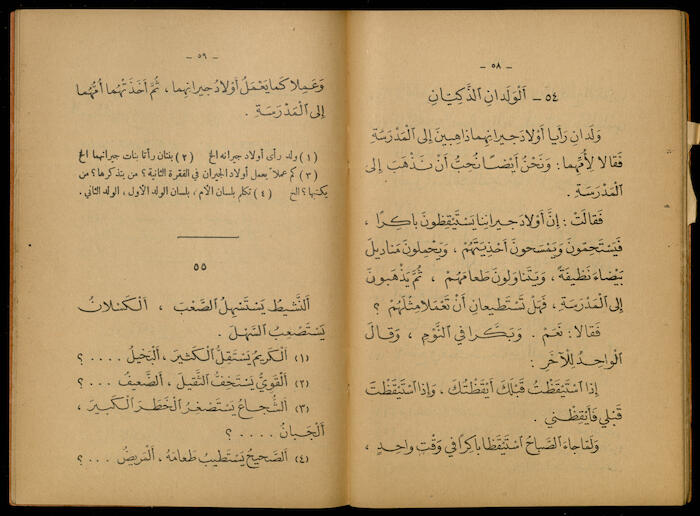 - ٥٨ -
٥٤ - اَلْوَلَدانِ الذَّكِيّانِ
وَلَدانِ رَأَيا أَوْلادَ جيرانِهِما ذاهِبينَ إِلى الْمَدْرَسَةِ
فَقالا لِأُمِّهِما : وَنَحْنُ أَيْضًا نُحِبُّ أَنْ نَذْهَبَ إِلى
الْمَدْرَسَةِ .
فَقالَتْ : إِنَّ أَوْلادَ جيرانِنا يَسْتَيْقِظونَ باكِرًا ،
فَيَسْتَحِمّونَ وَيَمْسَحونَ أَحْذِيَتَهُمْ ، وَيَحْمِلونَ مَناديلَ
بَيْضاءَ نَظيفَةً ، وَيَتَناوَلونَ طَعامَهُمْ ، ثُمَّ يَذْهَبونَ
إِلى الْمَدْرَسَةِ ، فَهَلْ تَسْتَطيعانِ أَنْ تَعْمَلا مِثْلَهُمْ ؟
فَقالا : نَعَمْ . وَبَكَّرا في النَّوْمِ ، وَقالَ
الْواحِدُ لِلْآخَرِ :
إِذا اسْتَيْقَظْتُ قَبْلَكَ أَيْقَظْتُكَ ، وَإِذا اسْتَيْقَظْتَ
قَبْلي فَأَيْقِظْني .
وَلَمّا جاءَ الصَّباحُ اسْتَيْقَظا باكِرًا في وَقْتٍ واحِدٍ ،
- ٥٩ -
وَعَمِلا كَما يَعْمَلُ أَوْلادُ جيرانِهِما ، ثُمَّ أَخَذَتْهُما أُمُّهُما
إِلى الْمَدْرَسَةِ .
(١) ولد رأى أولاد جيرانه الخ (٢) بنتان رأتا بنات جيرانهما الخ
(٣) كم عملاً يعمل أولاد الجيران في الفقرة الثانية ؟ من يتذكرها ؟ من
يكتبها ؟ الخ (٤) تكلم بلسان الأم ، بلسان الولد الأول ، الولد الثاني .
٥٥
اَلنَّشيطُ يَسْتَسْهِلُ الصَّعْبَ ، اَلْكَسْلانُ
يَسْتَصْعِبُ السَّهْلَ .
(١) اَلْكَريمُ يَسْتَقِلُّ الْكَثيرَ ، اَلْبَخيلُ .... ؟
(٢) اَلْقَوِيُّ يَسْتَخِفُّ الثَّقيلَ ، اَلضَّعيفُ ... ؟
(٣) اَلشُّجاعُ يَسْتَصْغِرُ الْخَطَرَ الْكَبيرَ ،
اَلْجَبانُ .... ؟
(٤) اَلصَّحيحُ يَسْتَطيبُ طَعامَهُ ، اَلْمَريضُ ... ؟